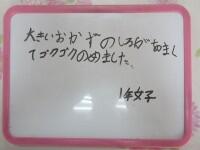 大きいおかずのしるがあまく
てゴクゴクのめました。
1年女子